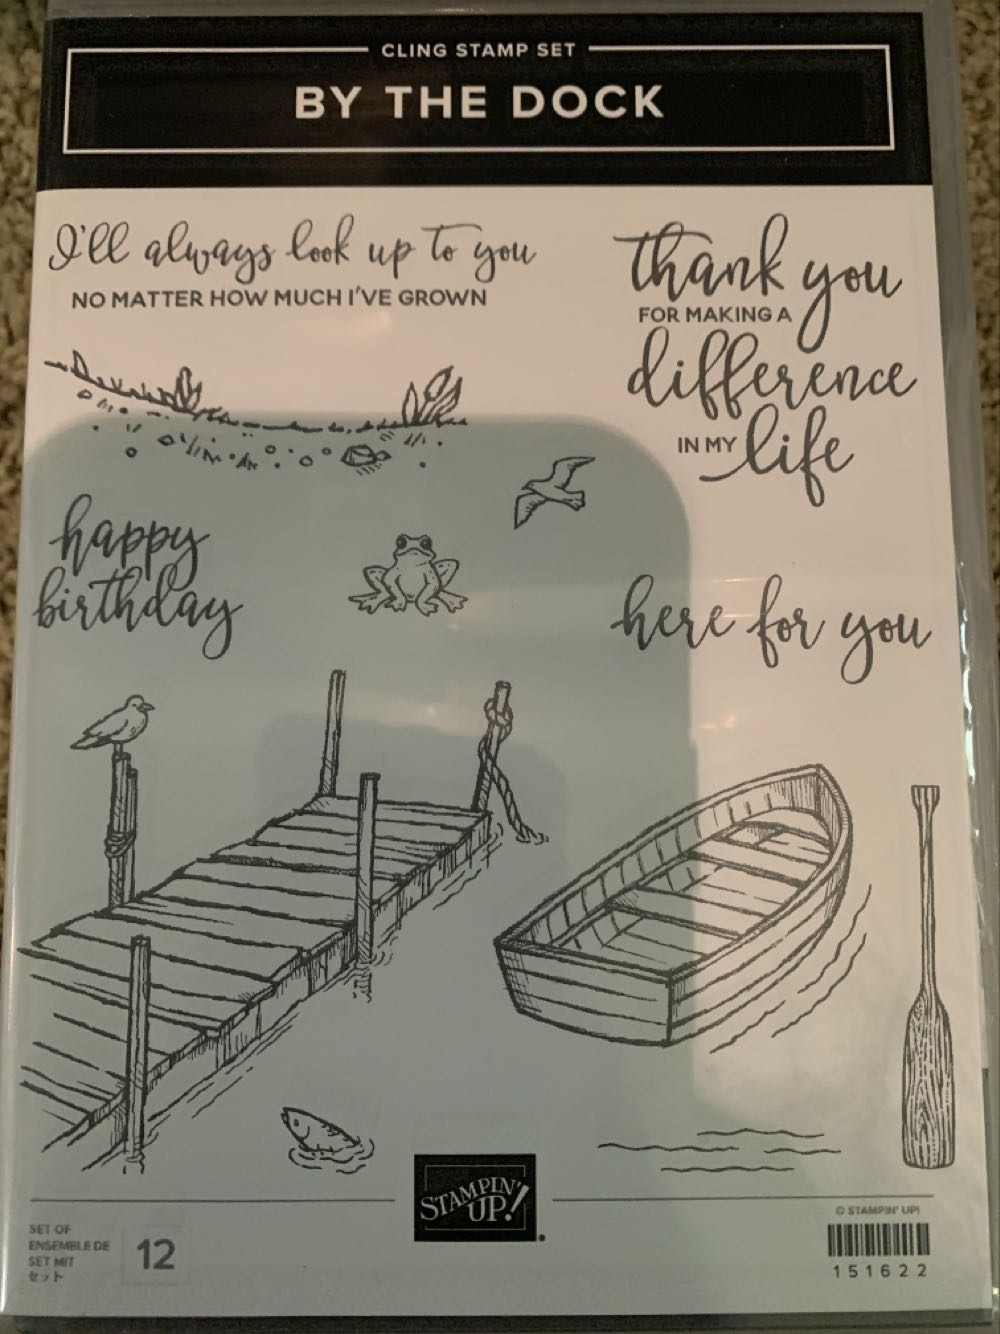 CLING STAMP SET
BY THE DOCK
I'll always look up to you
NO MATTER HOW MUCH I'VE GROWN
thank you
FOR MAKING A
difference
IN MY life
happy
birthday
here for you
STAMPIN'
UP!
SET OF
ENSEMBLE DE
SET MIT
セット
12
© STAMPIN' UP!
151622